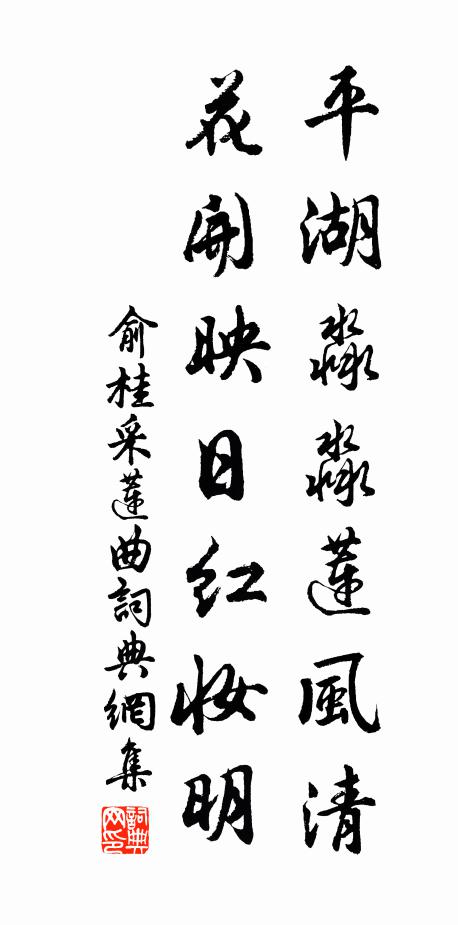 平湖淼淼蓮風清
花開映日紅妝明
俞桂采蓮曲詞典網集
詞典网印